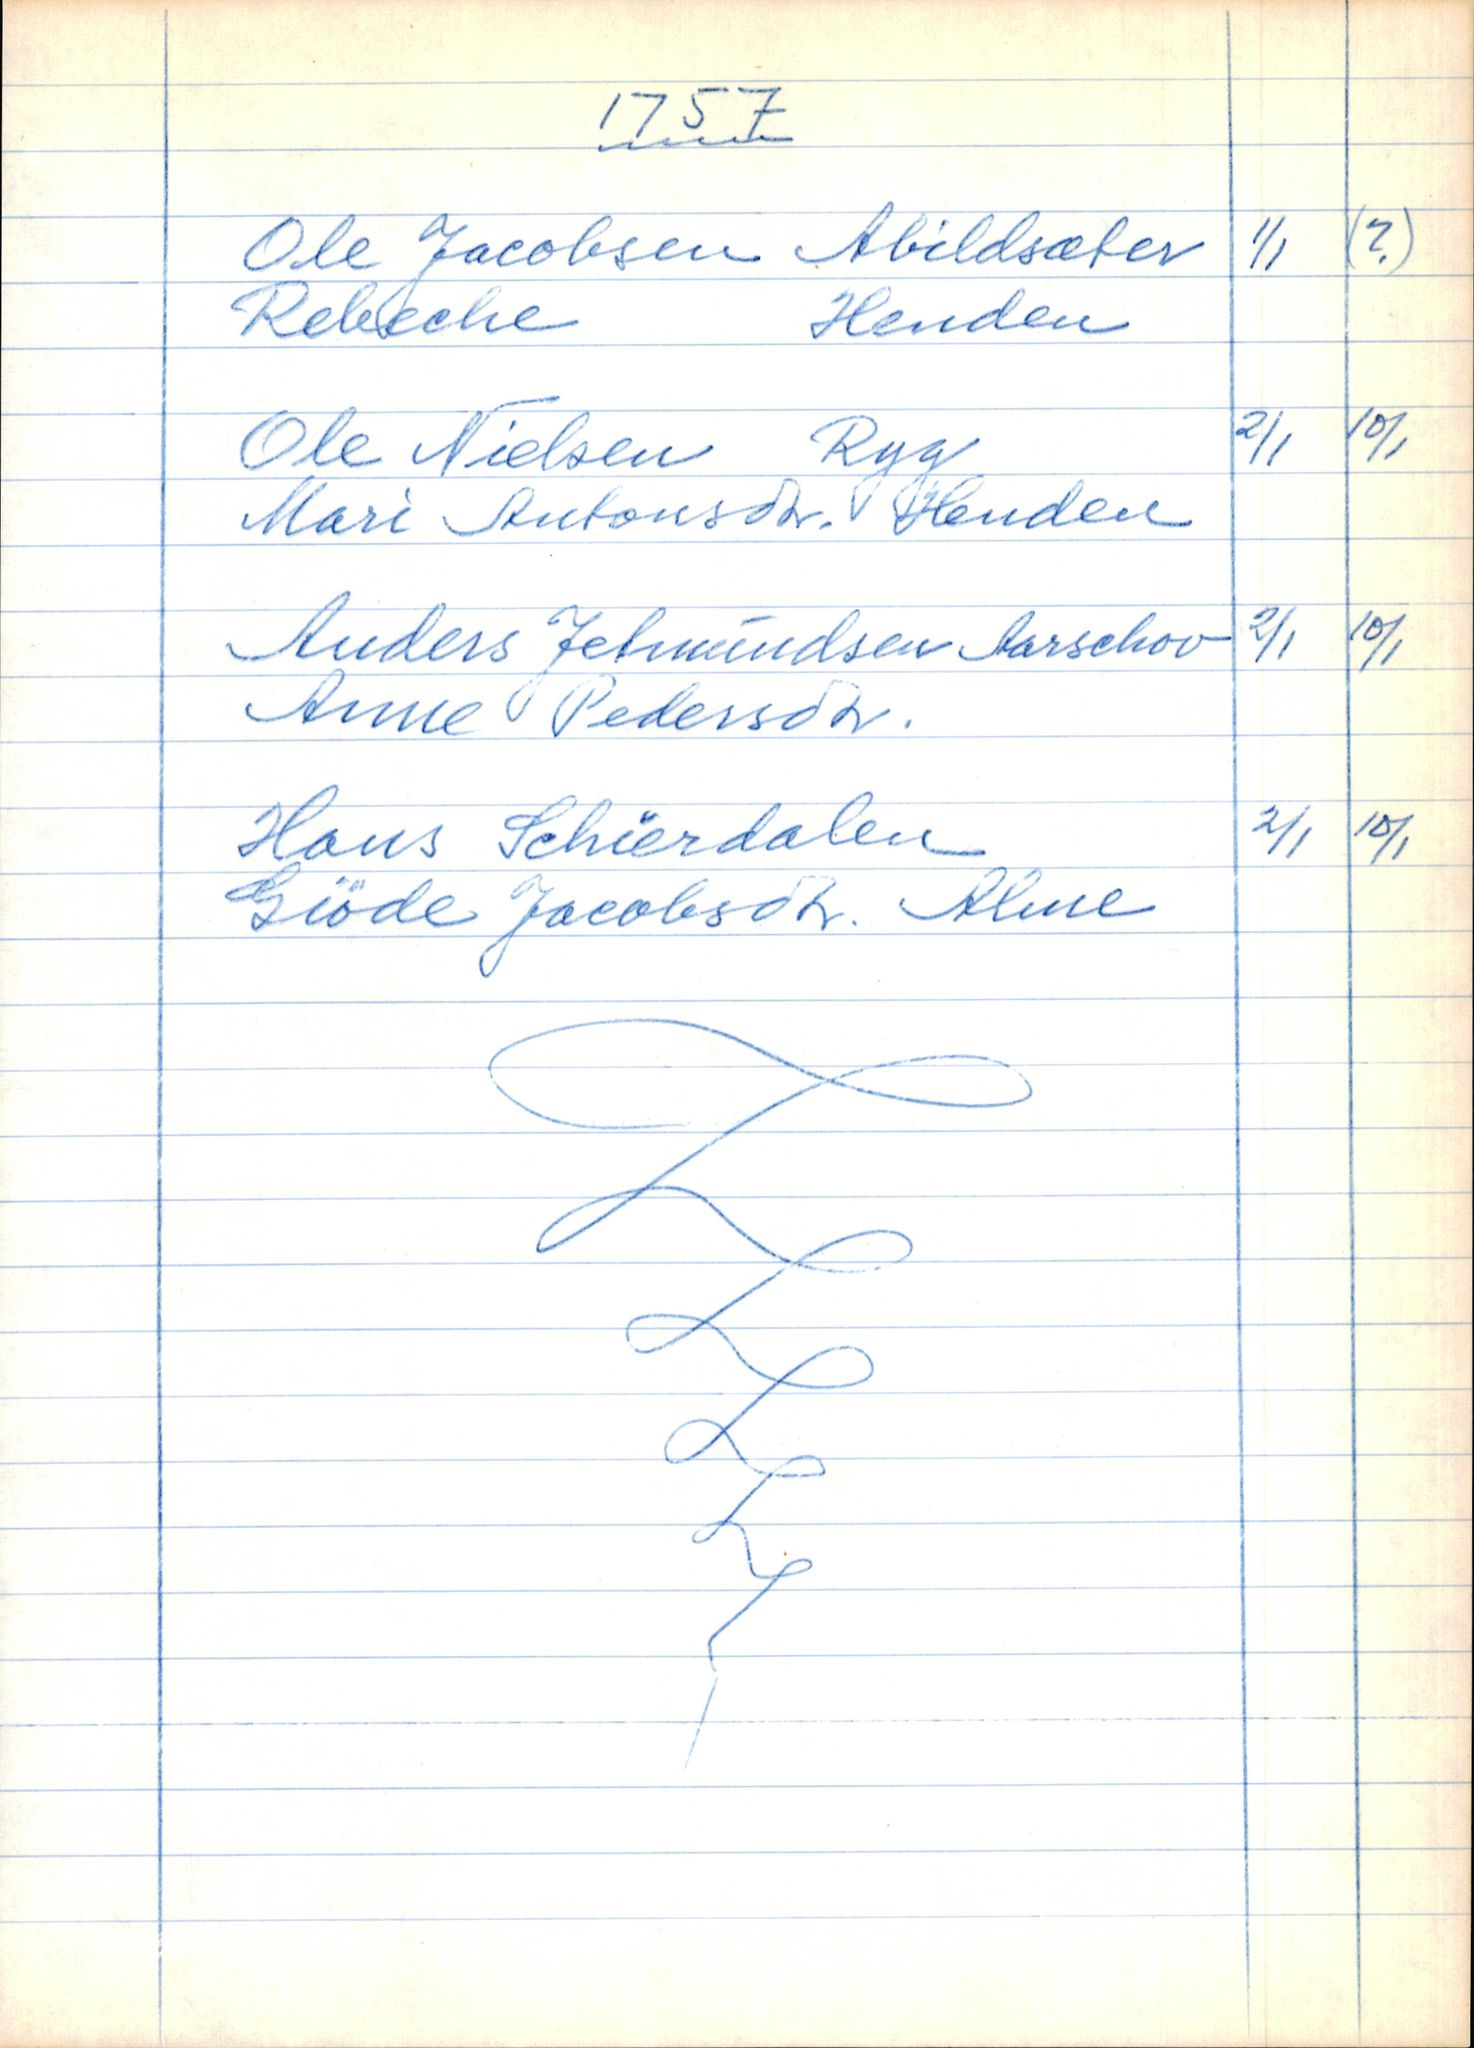 1757
Ole Jacobsen Abildsæter 1/1 (?)
Rebeche Henden
Ole Nielsen Ryg 2/1 10/1
Mari Antonsdtr. Henden
Anders Jetmundsen Aarschov 2/1 10/1
Anne Pedersdtr.
Hans Schierdalen 2/1 10/1
Giöde Jacobsdtr. Alme